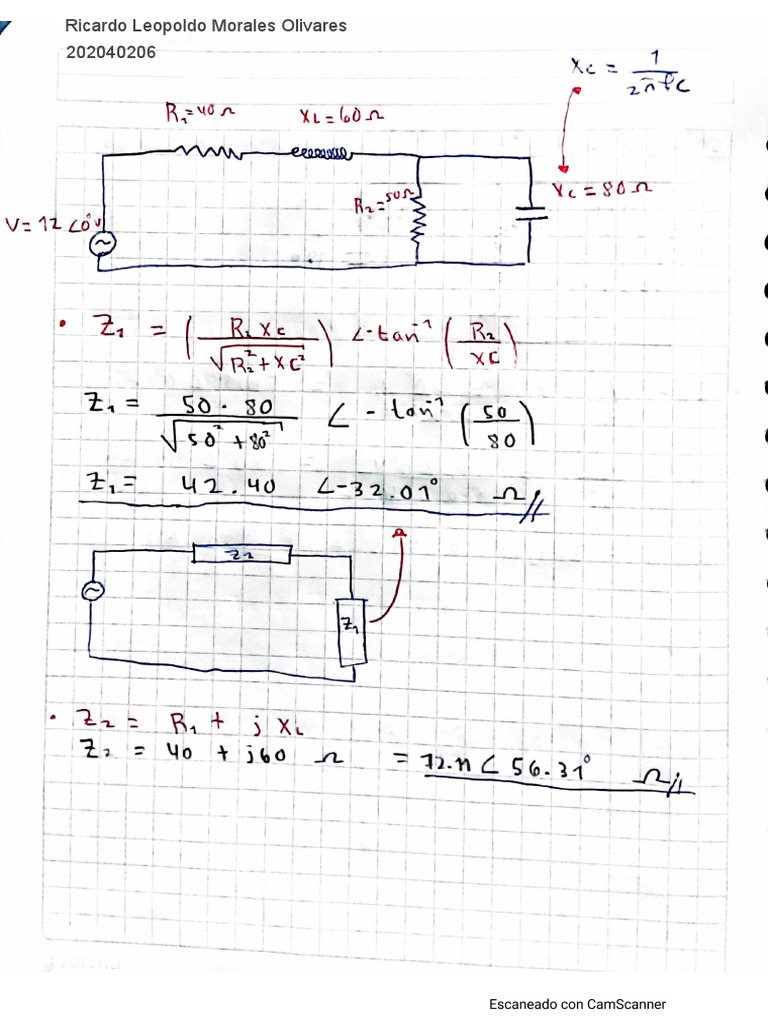 Ricardo Leopoldo Morales Olivares
202040206
Xc = 1 / 2πfc
R1=40Ω XL=60Ω
R2=50Ω
Xc = 80Ω
V=12∠0°V
• Z1 = (R2 Xc / √R2²+Xc²) ∠-tan⁻¹ (R2 / Xc)
Z1 = 50 · 80 / √50²+80² ∠-tan⁻¹ (50 / 80)
Z1 = 42.40 ∠-32.01° Ω
Z2
Z1
• Z2 = R1 + j XL
Z2 = 40 + j60 Ω = 72.11∠56.31° Ω
Escaneado con CamScanner